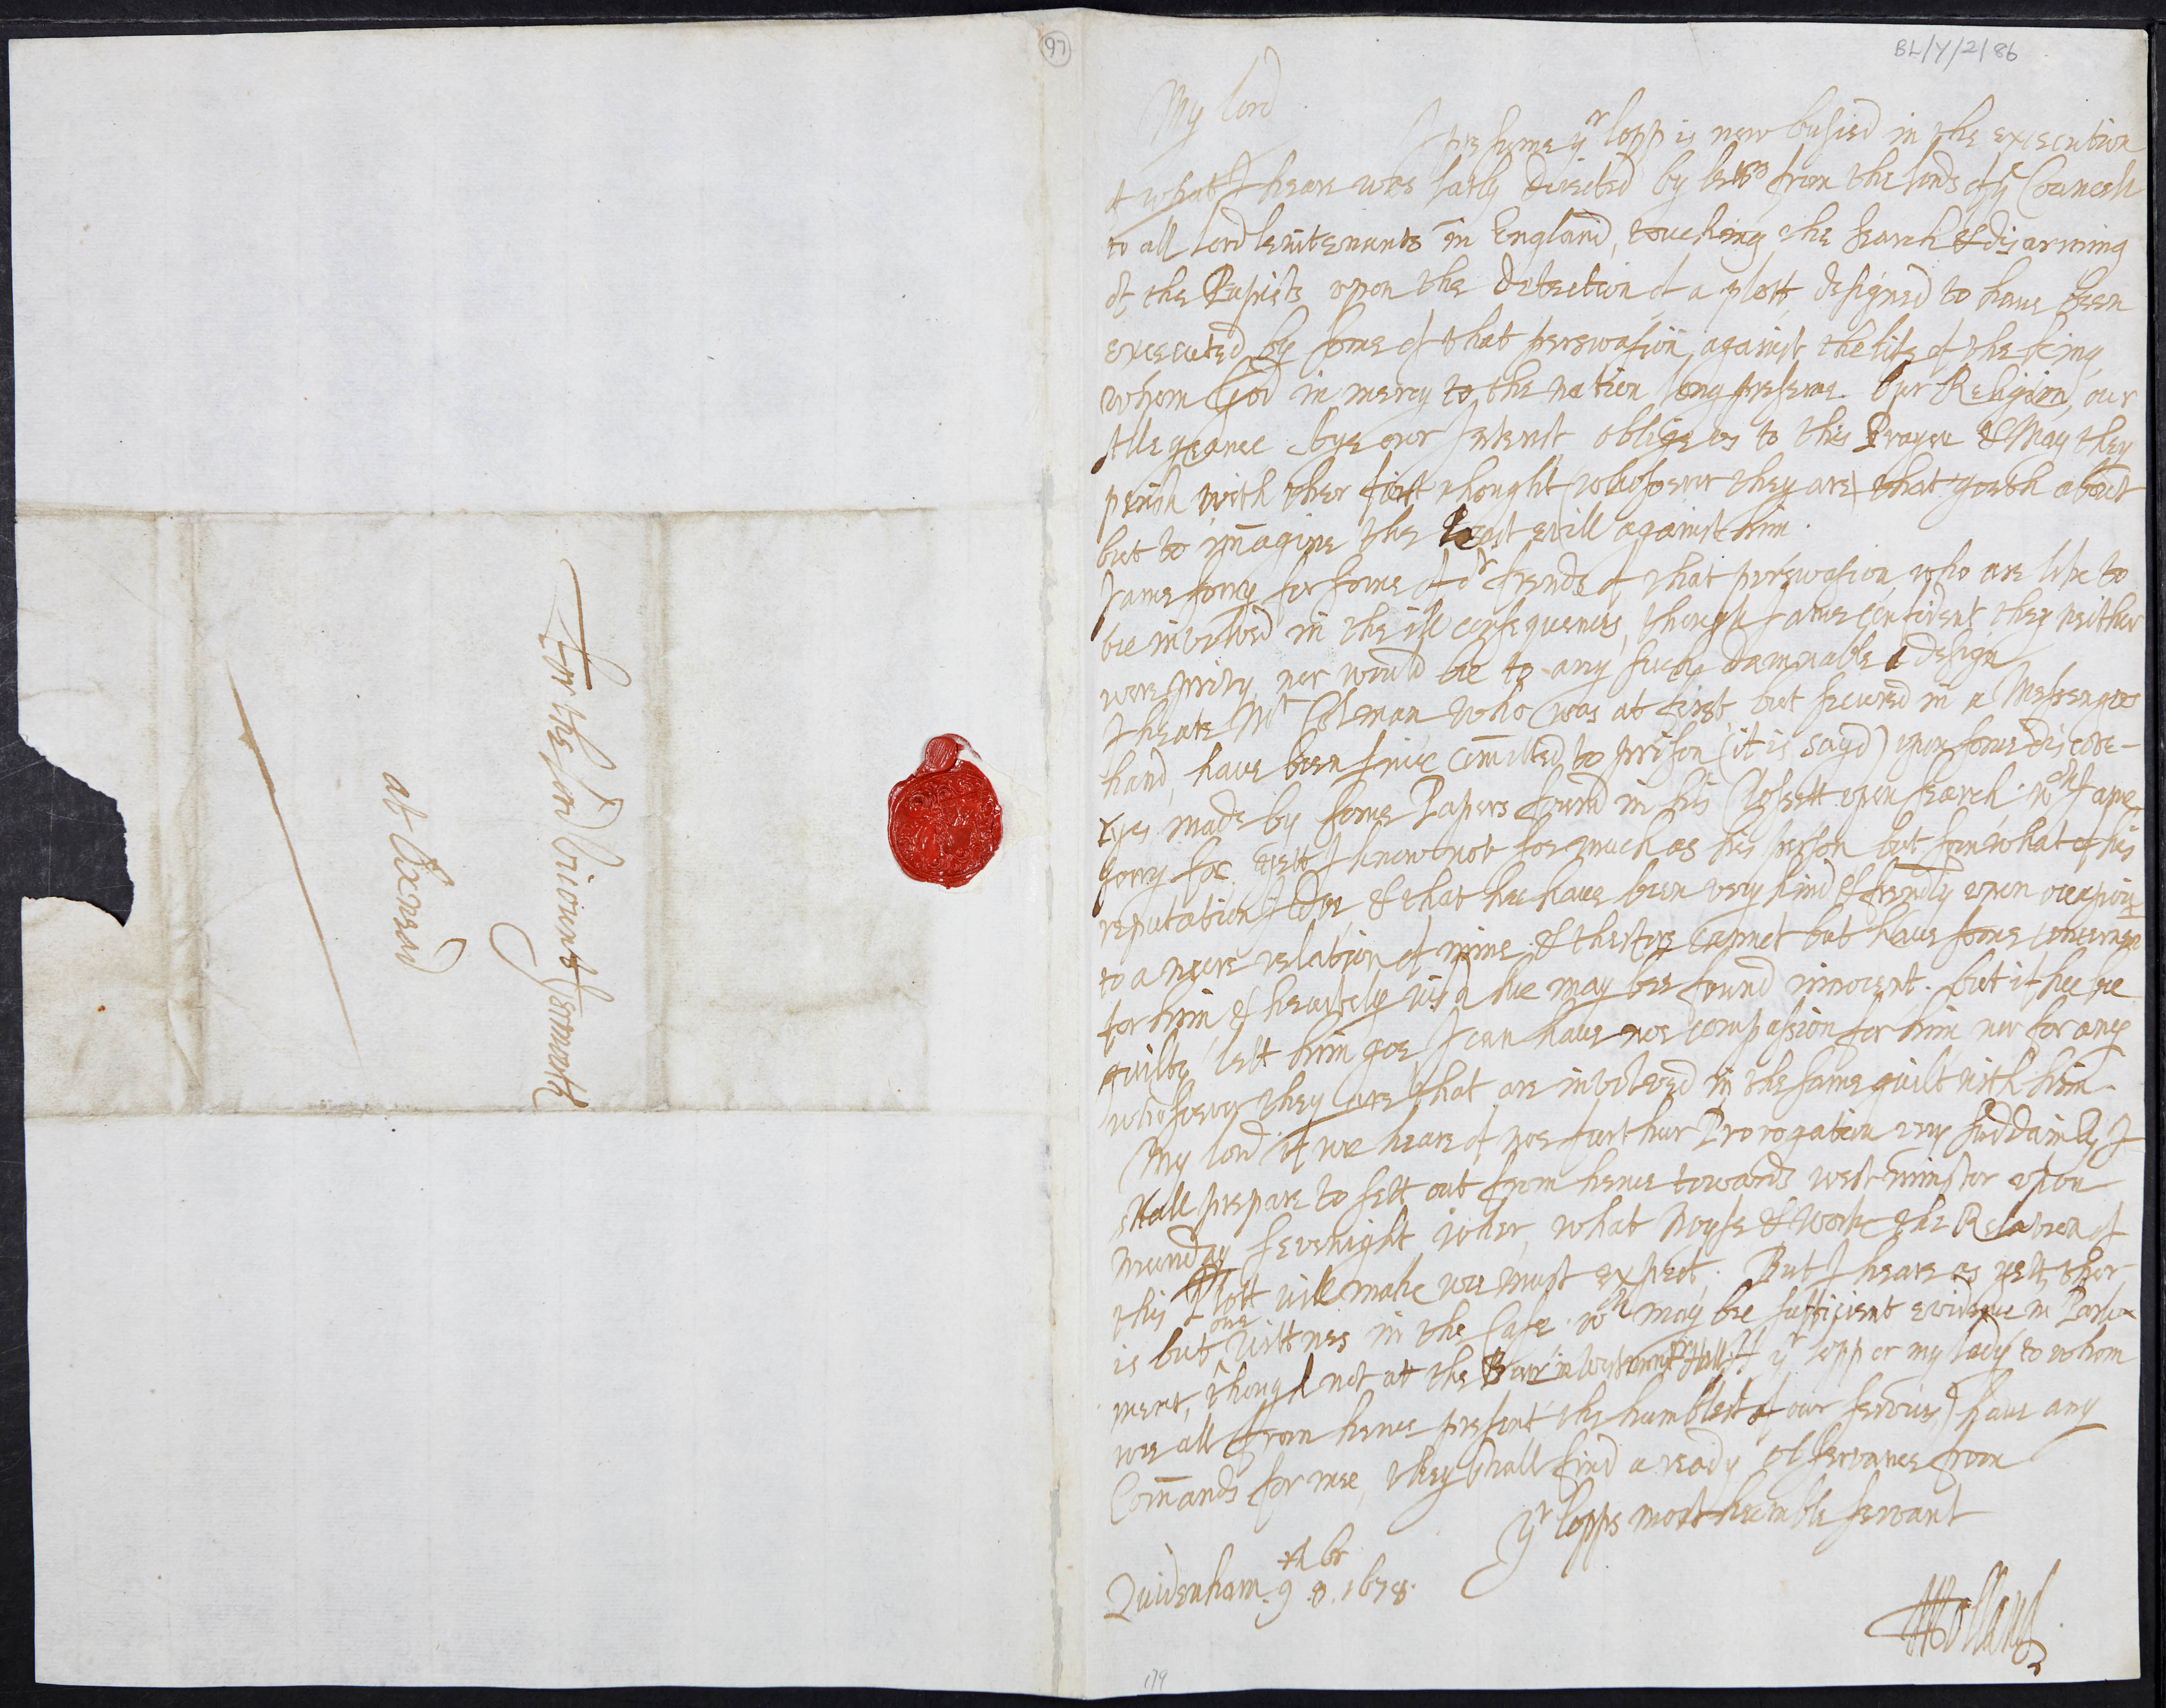 97
BL/Y/2/86
My Lord
I presume yr Lopp is now busied in the execution
of what I heare was lately directed by letters from the Lords of ye Councell
to all Lord leiutenants in England, touching the search & disarming
of the Papists upon the detection of a plott designed to have been
executed by some of that perswasion against the life of the King
whom God in mercy to the nation long preserve. Our Religion, our
Allegeance, bye our Interest obliges us to this Prayer & May they
perish with ther first thought (whosoever they are) that goeth about
but to imagine the least evill against him.
I ame sorry for some of or frends of that perswasion, who are like to
be involved in the ill consequences, though I ame confident they neither
were privy nor would be to any such damnable a design
I heare Mr Colman who was at first but secured in a Messengers
hand, have been since comitted to prison (it is sayd) upon some discove-
ryes made by some Papers found in his Clossett upon search. wch I ame
sorry for. I know not soe much as his person but somwhat of his
reputation I doe & that hee have been very kind & frendly upon occasions
to a neere relation of mine & therfore cannot but have some concernes
for him & heartely wish hee may bee found innocent. but if hee be
guilty lett him goe I can have noe compassion for him nor for any
whosoever they are that are involved in the same guilt with him.
My lord if we heare of noe further Prorogation very suddainly I
shall prepare to sett out from hence towards westminster upon
Munday sevenight, wher, what noyse & work the Relation of
this Plott will make wee must expect. But I heare as yett ther
is but one wittnes in the Case. wch may bee sufficient evidence in Parlia-
ment, though not at the Barr in Westminstr Hall. If yr lopp or my lady to whom
wee all from hence present the humblest of our services) have any
Comands for mee, they shall find a ready observance from
yr Lopps most humble servant
Quidenham. 9th 8br. 1678.
JHolland
179
For the Lord Viscount Yarmouth
at Oxnead